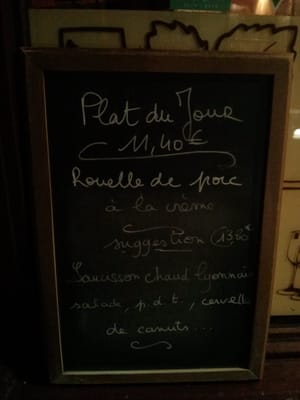 Plat du Jour
11,40€
Rouelle de porc
à la crème
suggestion
Saucisson chaud lyonnais
salade, p.d.t., cervelle
de canuts...